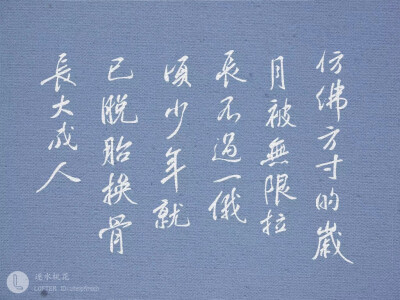 仿佛方寸的歲
月被無限拉
長不過一俄
頃少年就
已脫胎换骨
長大成人